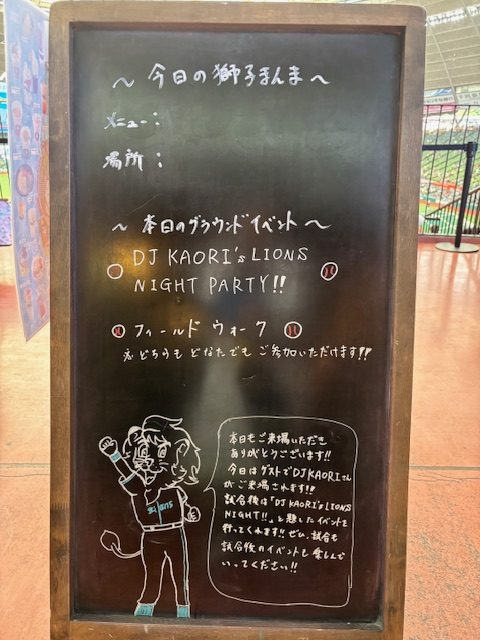 〜 今日の獅子まんま 〜
メニュー:
場所:
〜 本日のグラウンドイベント 〜
DJ KAORI's LIONS
NIGHT PARTY!!
フィールドウォーク
※どちらもどなたでもご参加いただけます!!
本日もご来場いただき
ありがとうございます!!
今日はゲストでDJ KAORIさん
がご来場されます!!
試合後は「DJ KAORI's LIONS
NIGHT!!」と題したイベントを
行ってくれます!! ぜひ、試合も
試合後のイベントも楽しんで
いってください!!